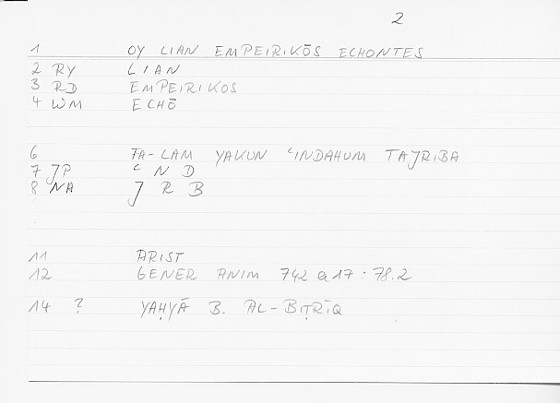 2
1 OY LIAN EMPEIRIKŌS ECHONTES
2 RY LIAN
3 RD EMPEIRIKOS
4 WM ECHŌ
6 FA-LAM YAKUN ʿINDAHUM TAJRIBA
7 JP ʿ N D
8 NA J R B
11 ARIST
12 GENER ANIM 742 a 17 : 78.2
14 ? YAḤYĀ B. AL-BIṬRĪQ